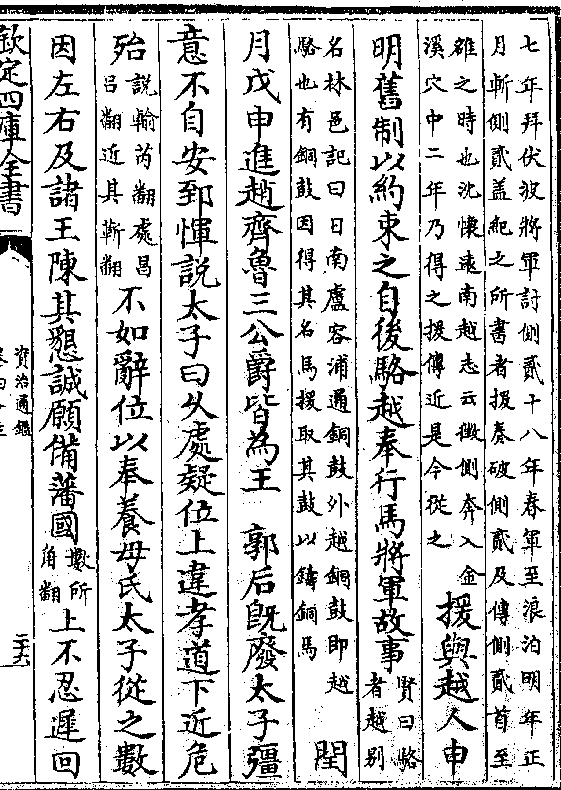 七年拜伏波將軍討側貳十八年春軍至浪泊明年正
月斬側貳盖紀之所書者援奏破側貳及傳側貳首至
雒之時也沈懷逺南越志云徴側奔入金
溪穴中二年乃得之援傳近是今從之
援與越人申
明舊制以約束之自後駱越奉行馬將軍故事
賢曰駱
者越别
名林邑記曰日南盧容浦通銅鼓外越銅鼓即越
駱也有銅鼓因得其名馬援取其鼓以鑄銅馬
閏
月戊申進趙齊魯三公爵皆為王 郭后旣廢太子彊
意不自安郅惲説太子曰乆處疑位上違孝道下近危
殆
説輸芮翻處昌
吕翻近其靳翻
不如辭位以奉養母氏太子從之數
因左右及諸王陳其懇誠願備藩國
數所
角翻
上不忍遲回
欽定四庫全書
資治通鑑